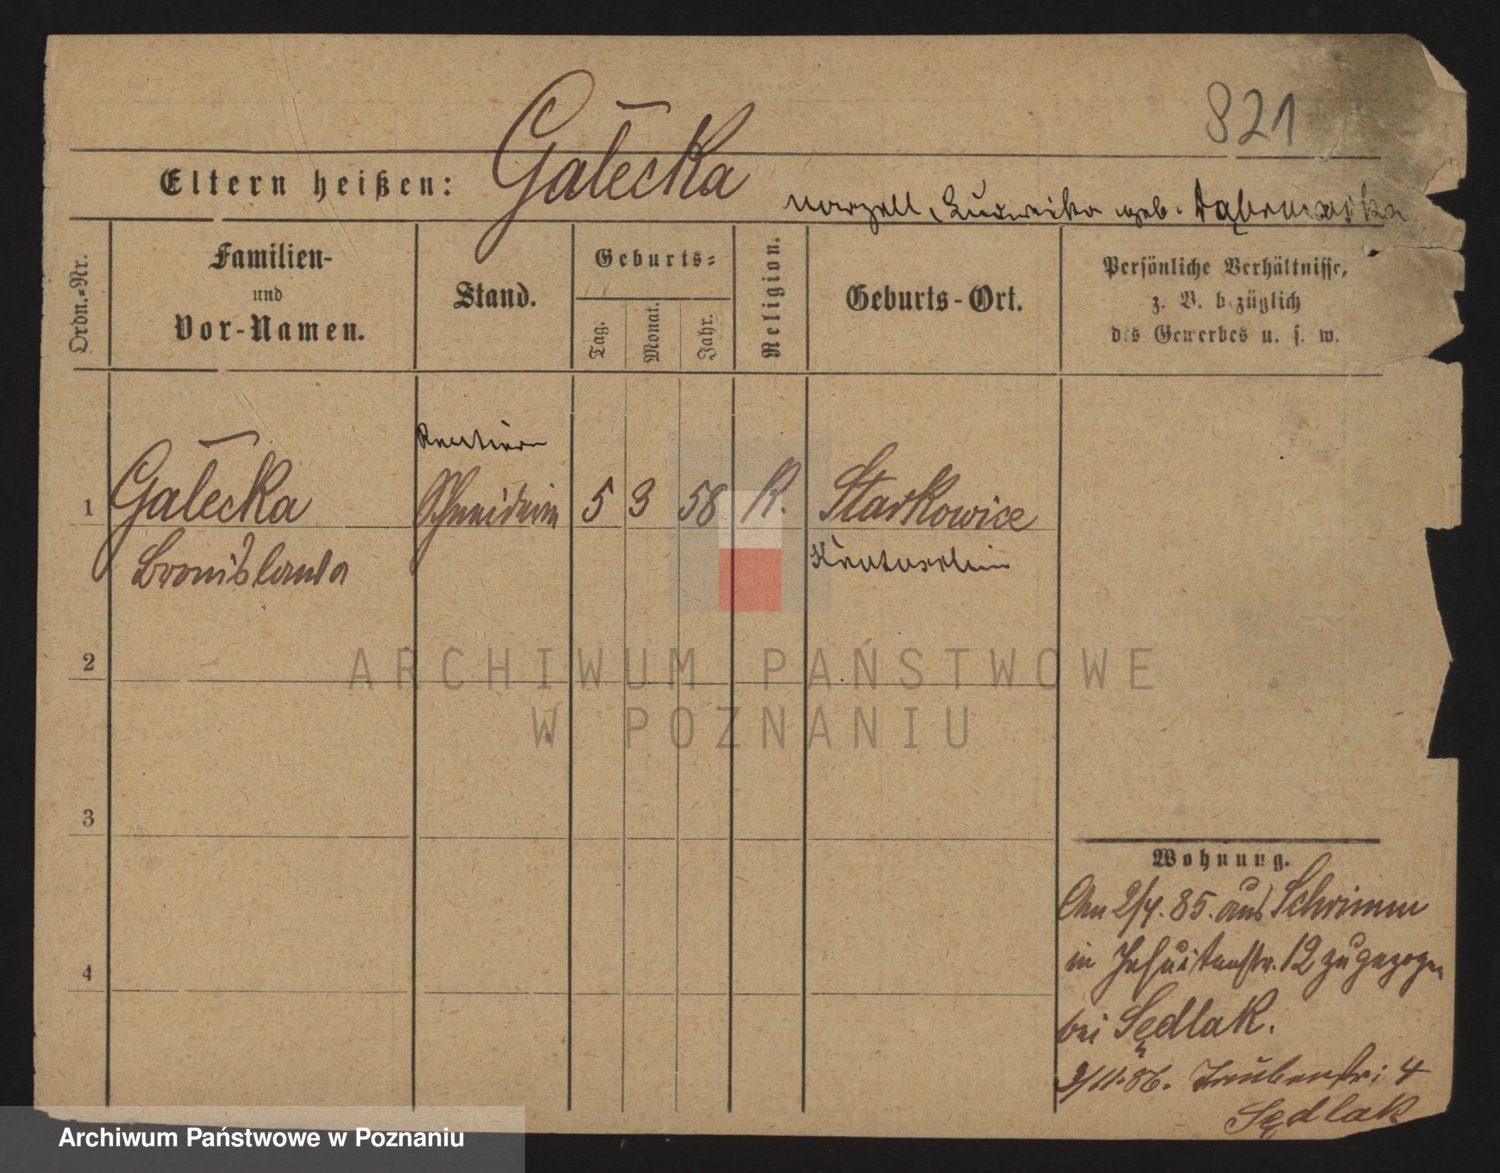 821
Gałecka
Eltern heißen: Marzell, Ludwika geb. Dąbrowska
Ordn.-Nr.
Familien-
und
Vor-Namen.
Stand.
Geburts-
Tag.
Monat.
Jahr.
Religion.
Geburts-Ort.
Persönliche Verhältnisse,
z. B. bezüglich
des Gewerbes u. s. w.
1 Gałecka Schneiderin 5 3 58 K. Starkowice
Bronislawa
2
3
4
Wohnung.
Am 2/4. 85. aus Schrimm
in Jesuitenstr. 12 zugezogen
bei Sędlak.
2/11.86. Taubenstr: 4
Sędlak
ARCHIWUM PAŃSTWOWE
W POZNANIU
Archiwum Państwowe w Poznaniu